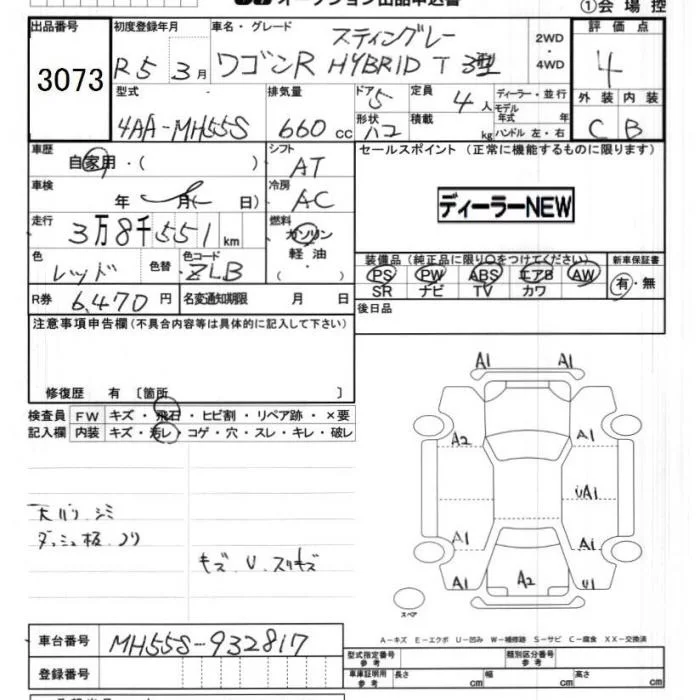 オークション出品申込書
①会場控
出品番号
3073
初度登録年月
R5 3月
車名・グレード
スティングレー
ワゴンR HYBRID T 3型
2WD
・
4WD
評価点
4
外装 内装
C B
型式
4AA-MH55S
排気量
660 cc
ドア 5
形状 ハコ
定員 4人
積載 kg
ディーラー・並行
モデル年式 年式
ハンドル 左・右
車歴
自家用・( )
シフト
AT
車検
年 月( 日)
冷房
AC
走行
3万8千551km
燃料
ガソリン
軽油
・( )
色
レッド
色替
色コード
ZLB
R券 6,470円
名変通知期限 月 日
セールスポイント (正常に機能するものに限ります)
ディーラーNEW
装備品(純正品に限り○をつけてください)
PS PW ABS エアB AW
SR ナビ TV カワ
新車保証書
有・無
後日品
注意事項申告欄(不具合内容等は具体的に記入して下さい)
修復歴 有 〔箇所 〕
検査員 FW キズ・飛石・ヒビ割・リペア跡・×要
記入欄 内装 キズ・汚レ・コゲ・穴・スレ・キレ・破レ
天バリ シミ
ダッシュ板 ノリ
キズ . U . スリキズ
A1 A1
A2 A1
UA1
A1 A1
A1 A2 U1
スペア
A-キズ E-エクボ U-凹み W-補修跡 S-サビ C-腐食 XX-交換済
車台番号 MH55S-932817
登録番号
型式指定番号 参考
類別区分番号 参考
車庫証明用 参考 長さ cm 幅 cm 高さ cm